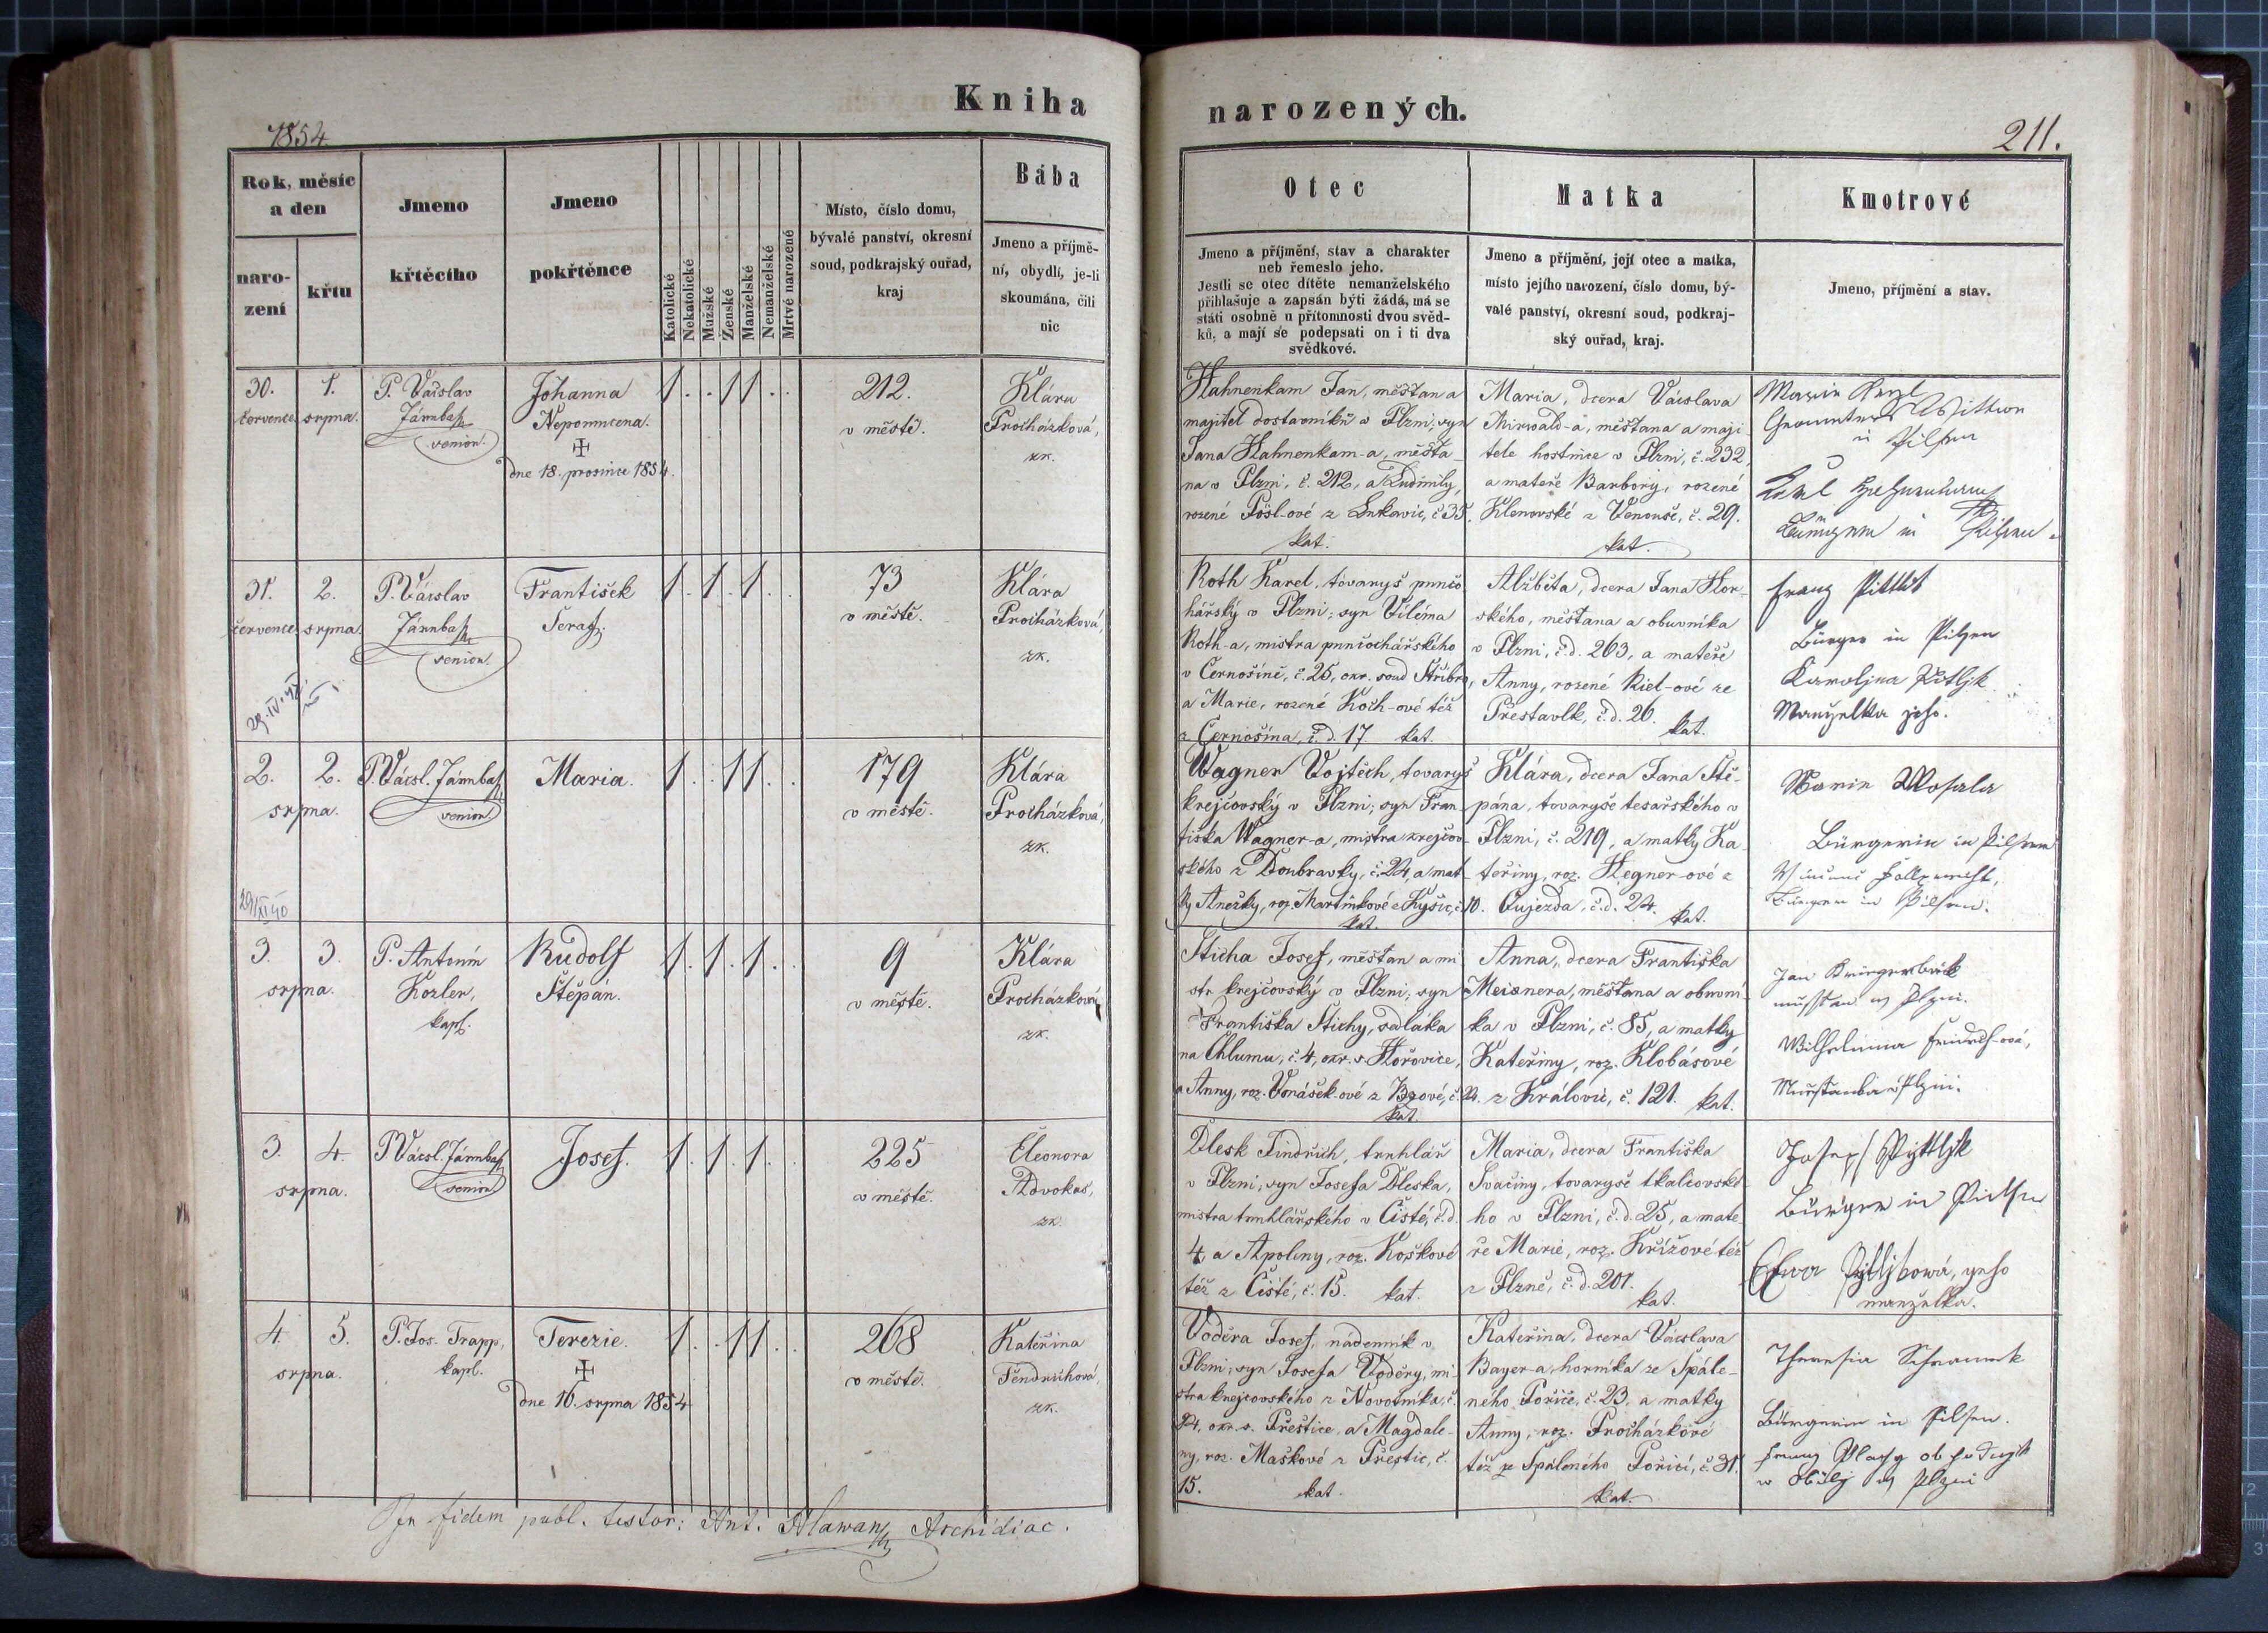 Kniha
narozených.
1854
211.
Rok, měsíc
a den
naro-
zení
křtu
Jmeno
křtěcího
Jmeno
pokřtěnce
Katolické
Nekatolické
Mužské
Ženské
Manželské
Nemanželské
Mrtvé narozené
Místo, číslo domu,
bývalé panství, okresní
soud, podkrajský ouřad,
kraj
Bába
Jmeno a příjmě-
ní, obydlí, je-li
skoumána, čili
nic
Otec
Jmeno a příjmění, stav a charakter
neb řemeslo jeho.
Jestli se otec dítěte nemanželského
přihlašuje a zapsán býti žádá, má se
státi osobně u přítomnosti dvou svěd-
ků, a mají se podepsati on i ti dva
svědkové.
Matka
Jmeno a příjmění, její otec a matka,
místo jejího narození, číslo domu, bý-
valé panství, okresní soud, podkraj-
ský ouřad, kraj.
Kmotrové
Jmeno, příjmění a stav.
30.
července
1.
srpna.
P. Václav
Järnbah
senior.
Johanna
Nepomucena.
dne 18. prosince 1854.
1 . . 1 1 . .
212.
v městě.
Klára
Procházková,
zk.
Hahnenkam Jan, měšťan a
majitel dostavníků v Plzni; syn
Jana Hahnenkam-a, měšťa-
na v Plzni, č. 212, a Ludmily,
rozené Pösl-ové z Lukavic, č 35.
kat.
Maria, dcera Vácslava
Mirwald-a, měšťana a maji-
tele hostince v Plzni, č. 232,
a mateře Barbory, rozené
Klenovské z Venouše, č. 29.
kat.
in Pilsen
in Pilsen
31.
července
2.
srpna.
P. Vácslav
Järnbah
senior.
František
Seraf.
1 . 1 . 1 . .
73
v městě.
Klára
Procházková,
zk.
29. IV. 42.
Roth Karel, tovaryš punčo-
hářský v Plzni; syn Viléma
Roth-a, mistra punčochářského
v Černošíně, č. 25, okr. soud Stříbro,
a Marie, rozené Koch-ové též
z Černošína, č. d. 17 kat.
Alžběta, dcera Jana Hor-
ského, měšťana a obuvníka
v Plzni, č. d. 263, a mateře
Anny, rozené Riel-ové ze
Přestavlk, č. d. 26.
kat.
Franz
Bürger in Pilzen
Karoljna
Manzelka jeho.
2.
2.
srpna.
P. Vácsl. Järnbah
senior
Maria.
1 . . 1 1 . .
179
v městě.
Klára
Procházková,
zk.
29/XI 40
Wagner Vojtěch, tovaryš
krejčovský v Plzni; syn Fran-
tiška Wagner-a, mistra krejčov-
ského z Doubravky, č. 24, a mat-
ky Anežky, roz. Martínkové z Kyšic, č. 10.
kat.
Klára, dcera Jana Ště-
pána, tovaryše tesařského v
Plzni, č. 219, a matky Ka-
teřiny, roz. Hegner-ové z
Oujezda, č. d. 24.
kat.
Marie Wosala
Bürgerin in Pilsen
Bürger in Pilsen.
3.
3.
srpna.
P. Antonín
Korler,
kapl.
Rudolf
Štěpán.
1 . 1 . 1 . .
9
v městě.
Klára
Procházková,
zk.
Sticha Josef, měšťan a mi-
str krejčovský v Plzni; syn
Františka Stichy, sedláka
na Chlumu, č. 4, okr. s. Hořovice,
a Anny, roz. Vonášek-ové z Bzové, č. 24.
kat.
Anna, dcera Františka
Meisnera, měšťana a obuvní-
ka v Plzni, č. 85, a matky
Kateřiny, roz. Klobásové
z Královic, č. 121. kat.
Jan
Wilhelmina
3.
4.
srpna.
P. Vácsl. Järnbah
senior
Josef.
1 . 1 . 1 . .
225
v městě.
Eleonora
Advokas,
zk.
Dlesk Jindřich, truhlář
v Plzni, syn Josefa Dleska,
mistra truhlářského v Čisté, č. d.
4, a Apoleny, roz. Koškové
též z Čisté, č. 15. kat.
Maria, dcera Františka
Svačiny, tovaryše tkalcovské-
ho v Plzni, č. d. 25, a mate-
ře Marie, roz. Křížové též
z Plzně, č. d. 201.
kat.
Joseph
Bürger in Pilsen
manželka.
4.
5.
srpna.
P. Jos. Trapp,
kapl.
Terezie.
dne 16. srpna 1854
1 . . 1 1 . .
268
v městě.
Kateřina
Fendrichová,
zk.
Voděra Josef, nádenník v
Plzni; syn Josefa Voděry, mi-
stra krejčovského z Novotníka, č.
24, okr. s. Přeštice, a Magdale-
ny, roz. Maškové z Přeštic, č.
15. kat.
Kateřina, dcera Vácslava
Bayer-a, horníka ze Spále-
ného Poříčí, č. 23, a matky
Anny, roz. Procházkové
též ze Spáleného Poříčí, č. 31.
kat.
Theresia
Bürgerin in Pilsen.
In fidem publ. testor: Ant. Hlawan Archidiac.